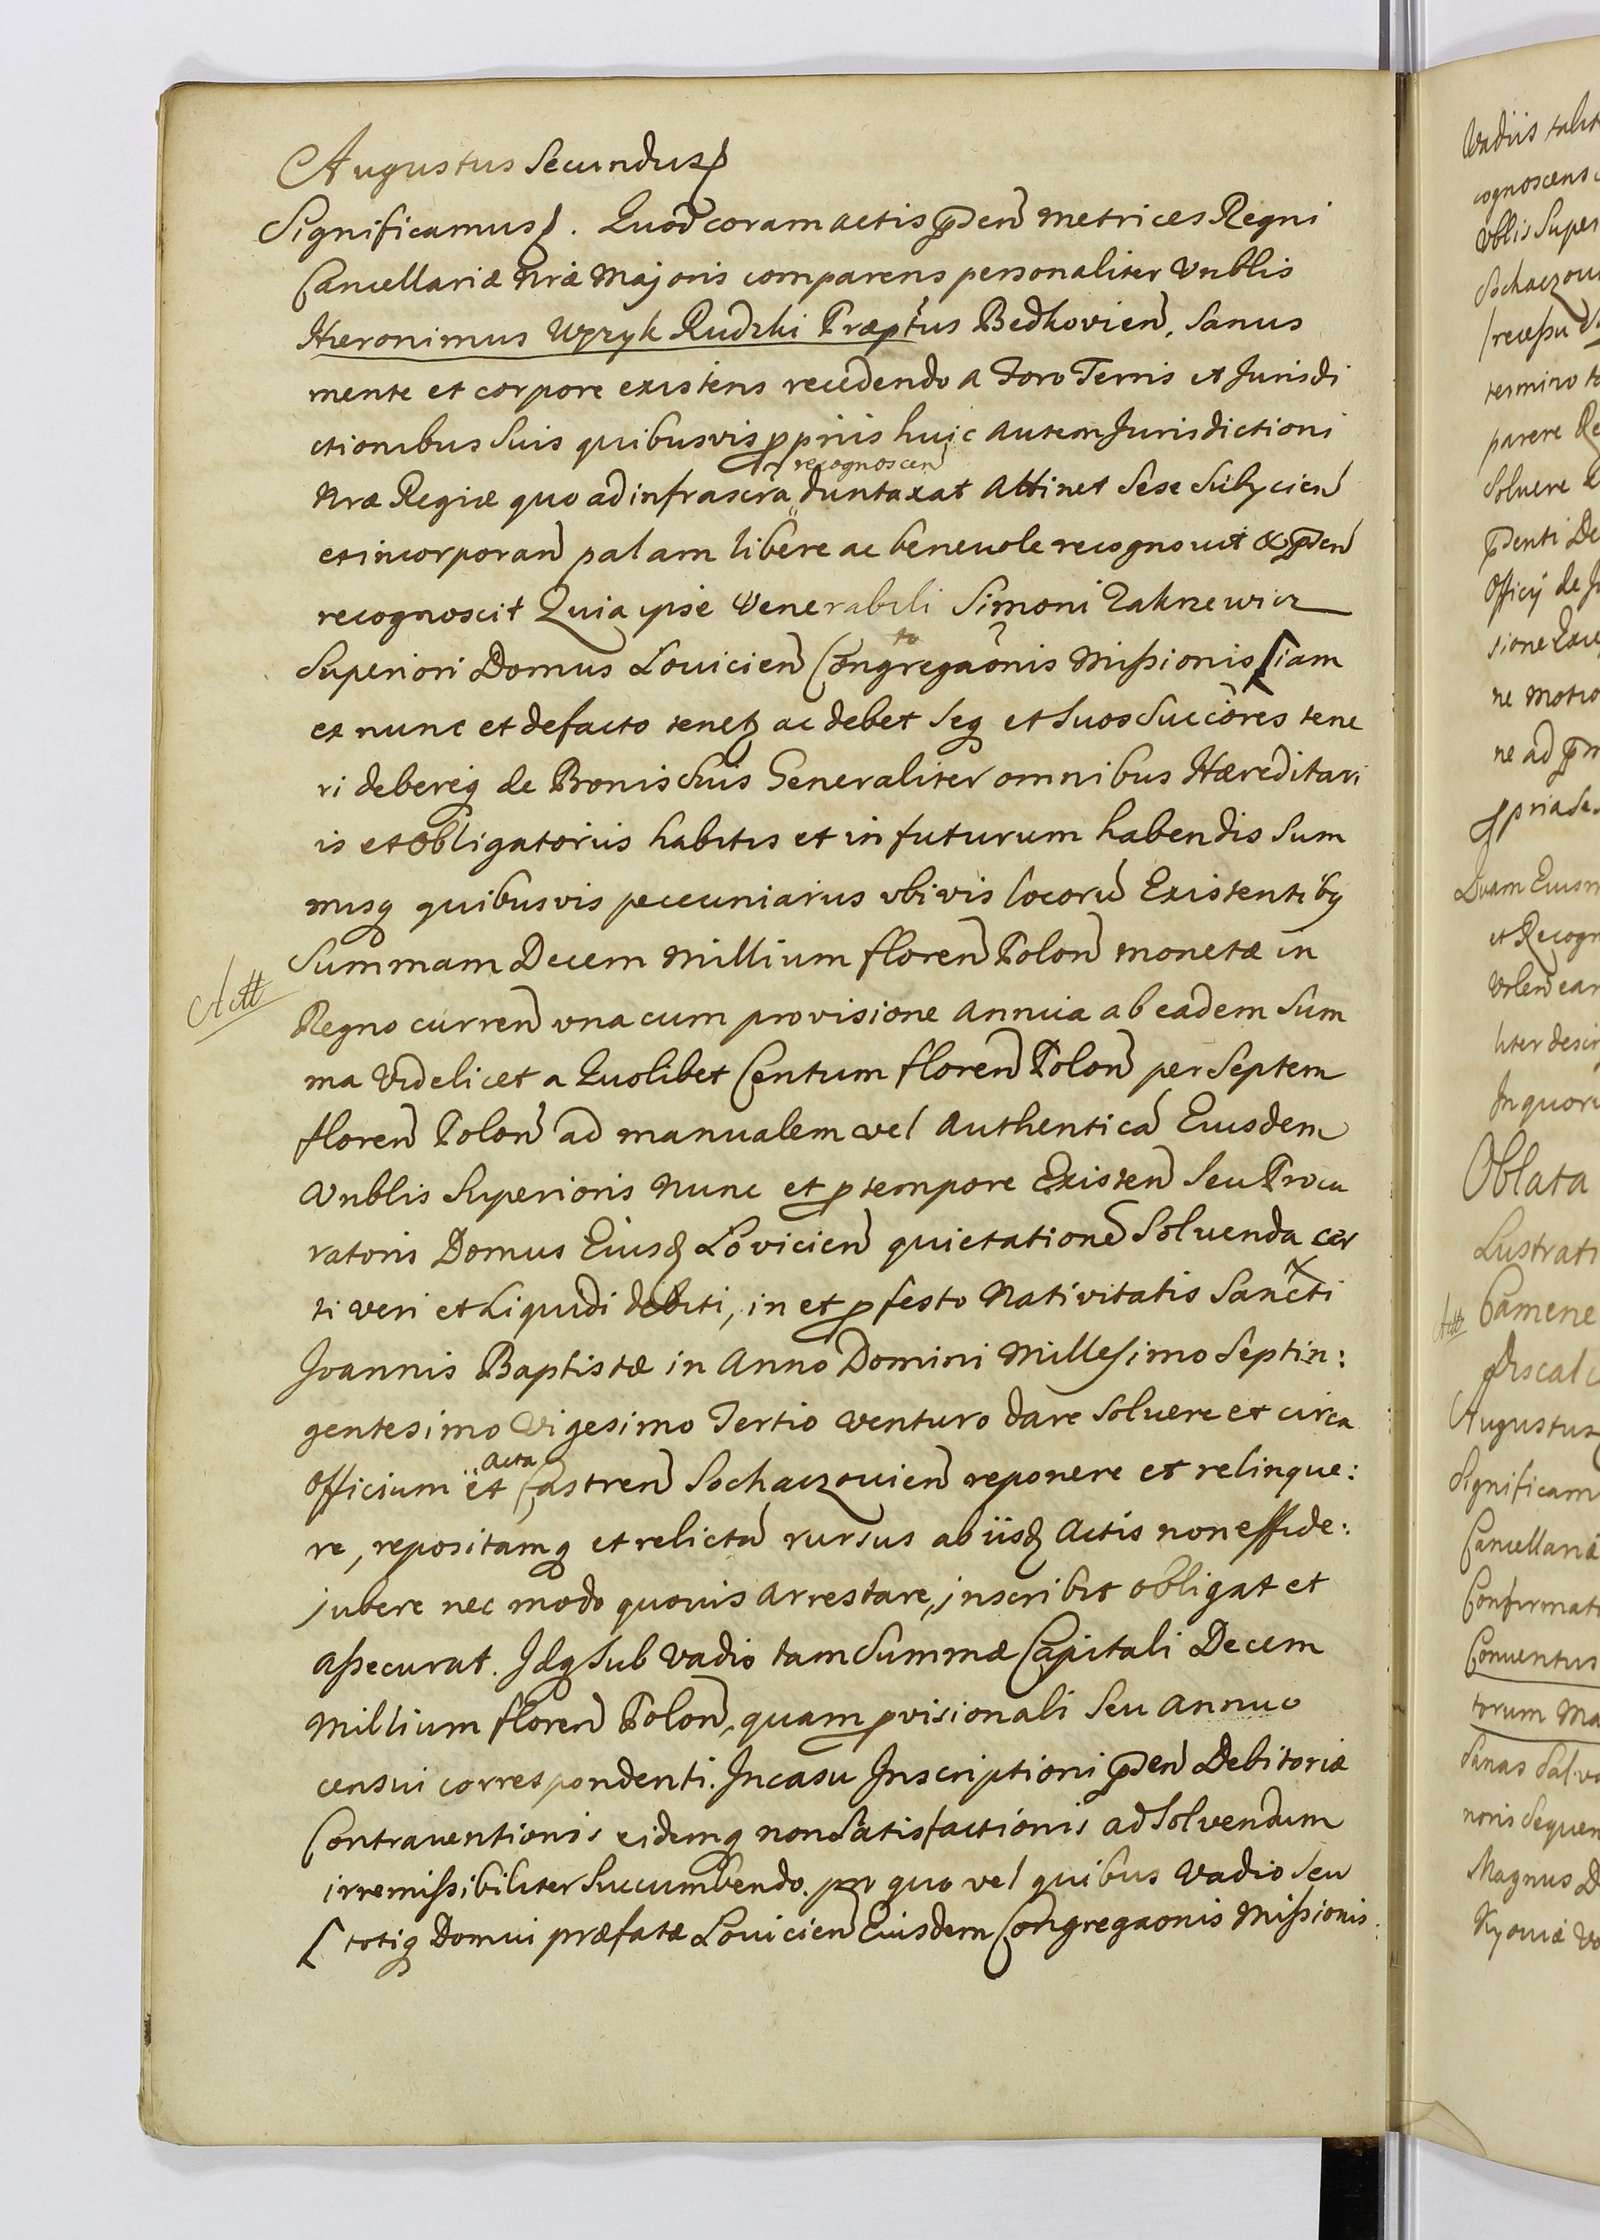 Augustus Secundus
Significamus. Quod coram actis pden Metrices Regni
Cancellariæ Nræ Majoris comparens personaliter Vnblis
Hieronimus Uzryk Rudzki Præptus Bedkovien, Sanus
mente et corpore existens recedendo a Foro Terris et Jurisdi
ctionibus Suis quibusvis ppriis huic autem Jurisdictioni
recognoscen
Nræ Regiæ quo ad infrascra duntaxat Attinet Sese Subycien
et incorporan palam libere ac benevole recognouit & pden
recognoscit Quia ipse Venerabili Simoni Zaknewicz
Superiori Domus Louicien Congregaonis Missionis [iam
ex nunc et defacto tenetz ac debet Seq et Suos Succôres tene
ri debereq de Bonis Suis Generaliter omnibus Hæreditari
is et Obligatoriis habitis et in futurum habendis Sum
misq quibusvis pecuniariis vbivis locorũ Existentibq
Summam Decem Millium floren Polon monetæ in
Act
Regno curren vna cum provisione Annua ab eadem Sum
ma Videlicet a Quolibet Centum floren Polon per Septem
floren Polon ad manualem vel Authenticã Eiusdem
Vnblis Superioris Nunc et p tempore Existen Seu Procu
ratoris Domus Eiusq Lovicien quietationẽ Soluenda cer
ti veri et Liquidi debiti, in et p festo Nativitatis Sancti
Joannis Baptistæ in Anno Domini Millesimo Septin:
gentesimo Vigesimo Tertio venturo dare Soluere et circa
Acta
Officium et Castren Sochaczouien reponere et relinque:
re, repositamq et relictã rursus ab iisq Actis non effide:
jubere nec modo quovis arrestare, inscribit obligat et
assecurat. Idq Sub Vadio tam Summæ Capitali Decem
Millium floren Polon, quam pvisionali Seu Annuo
censui correspondenti. In casu Inscriptioni pden Debitoriæ
Contraventionis eidemq non Satisfactionis ad Solvendum
irremissibiliter Succumbendo. pro quo vel quibus Vadio Seu
[ totiq Domui præfatæ Louicien Eiusdem Congregaonis Missionis
Vadiis
cognoscens
Vblis Super
Sochaczou
termino
parere
Soluere
pdenti De
Officij de
ne motio
ne ad
ppria
Quam
et Recogn
In quoru
Oblata
Lustrati
Act
Camene
Discalc
Augustus
Significam
Cancellariæ
Confirmati
Conuentus
torum Ma
Sanas Salv
noris Sequen
Magnus D
Kyoviæ Vo